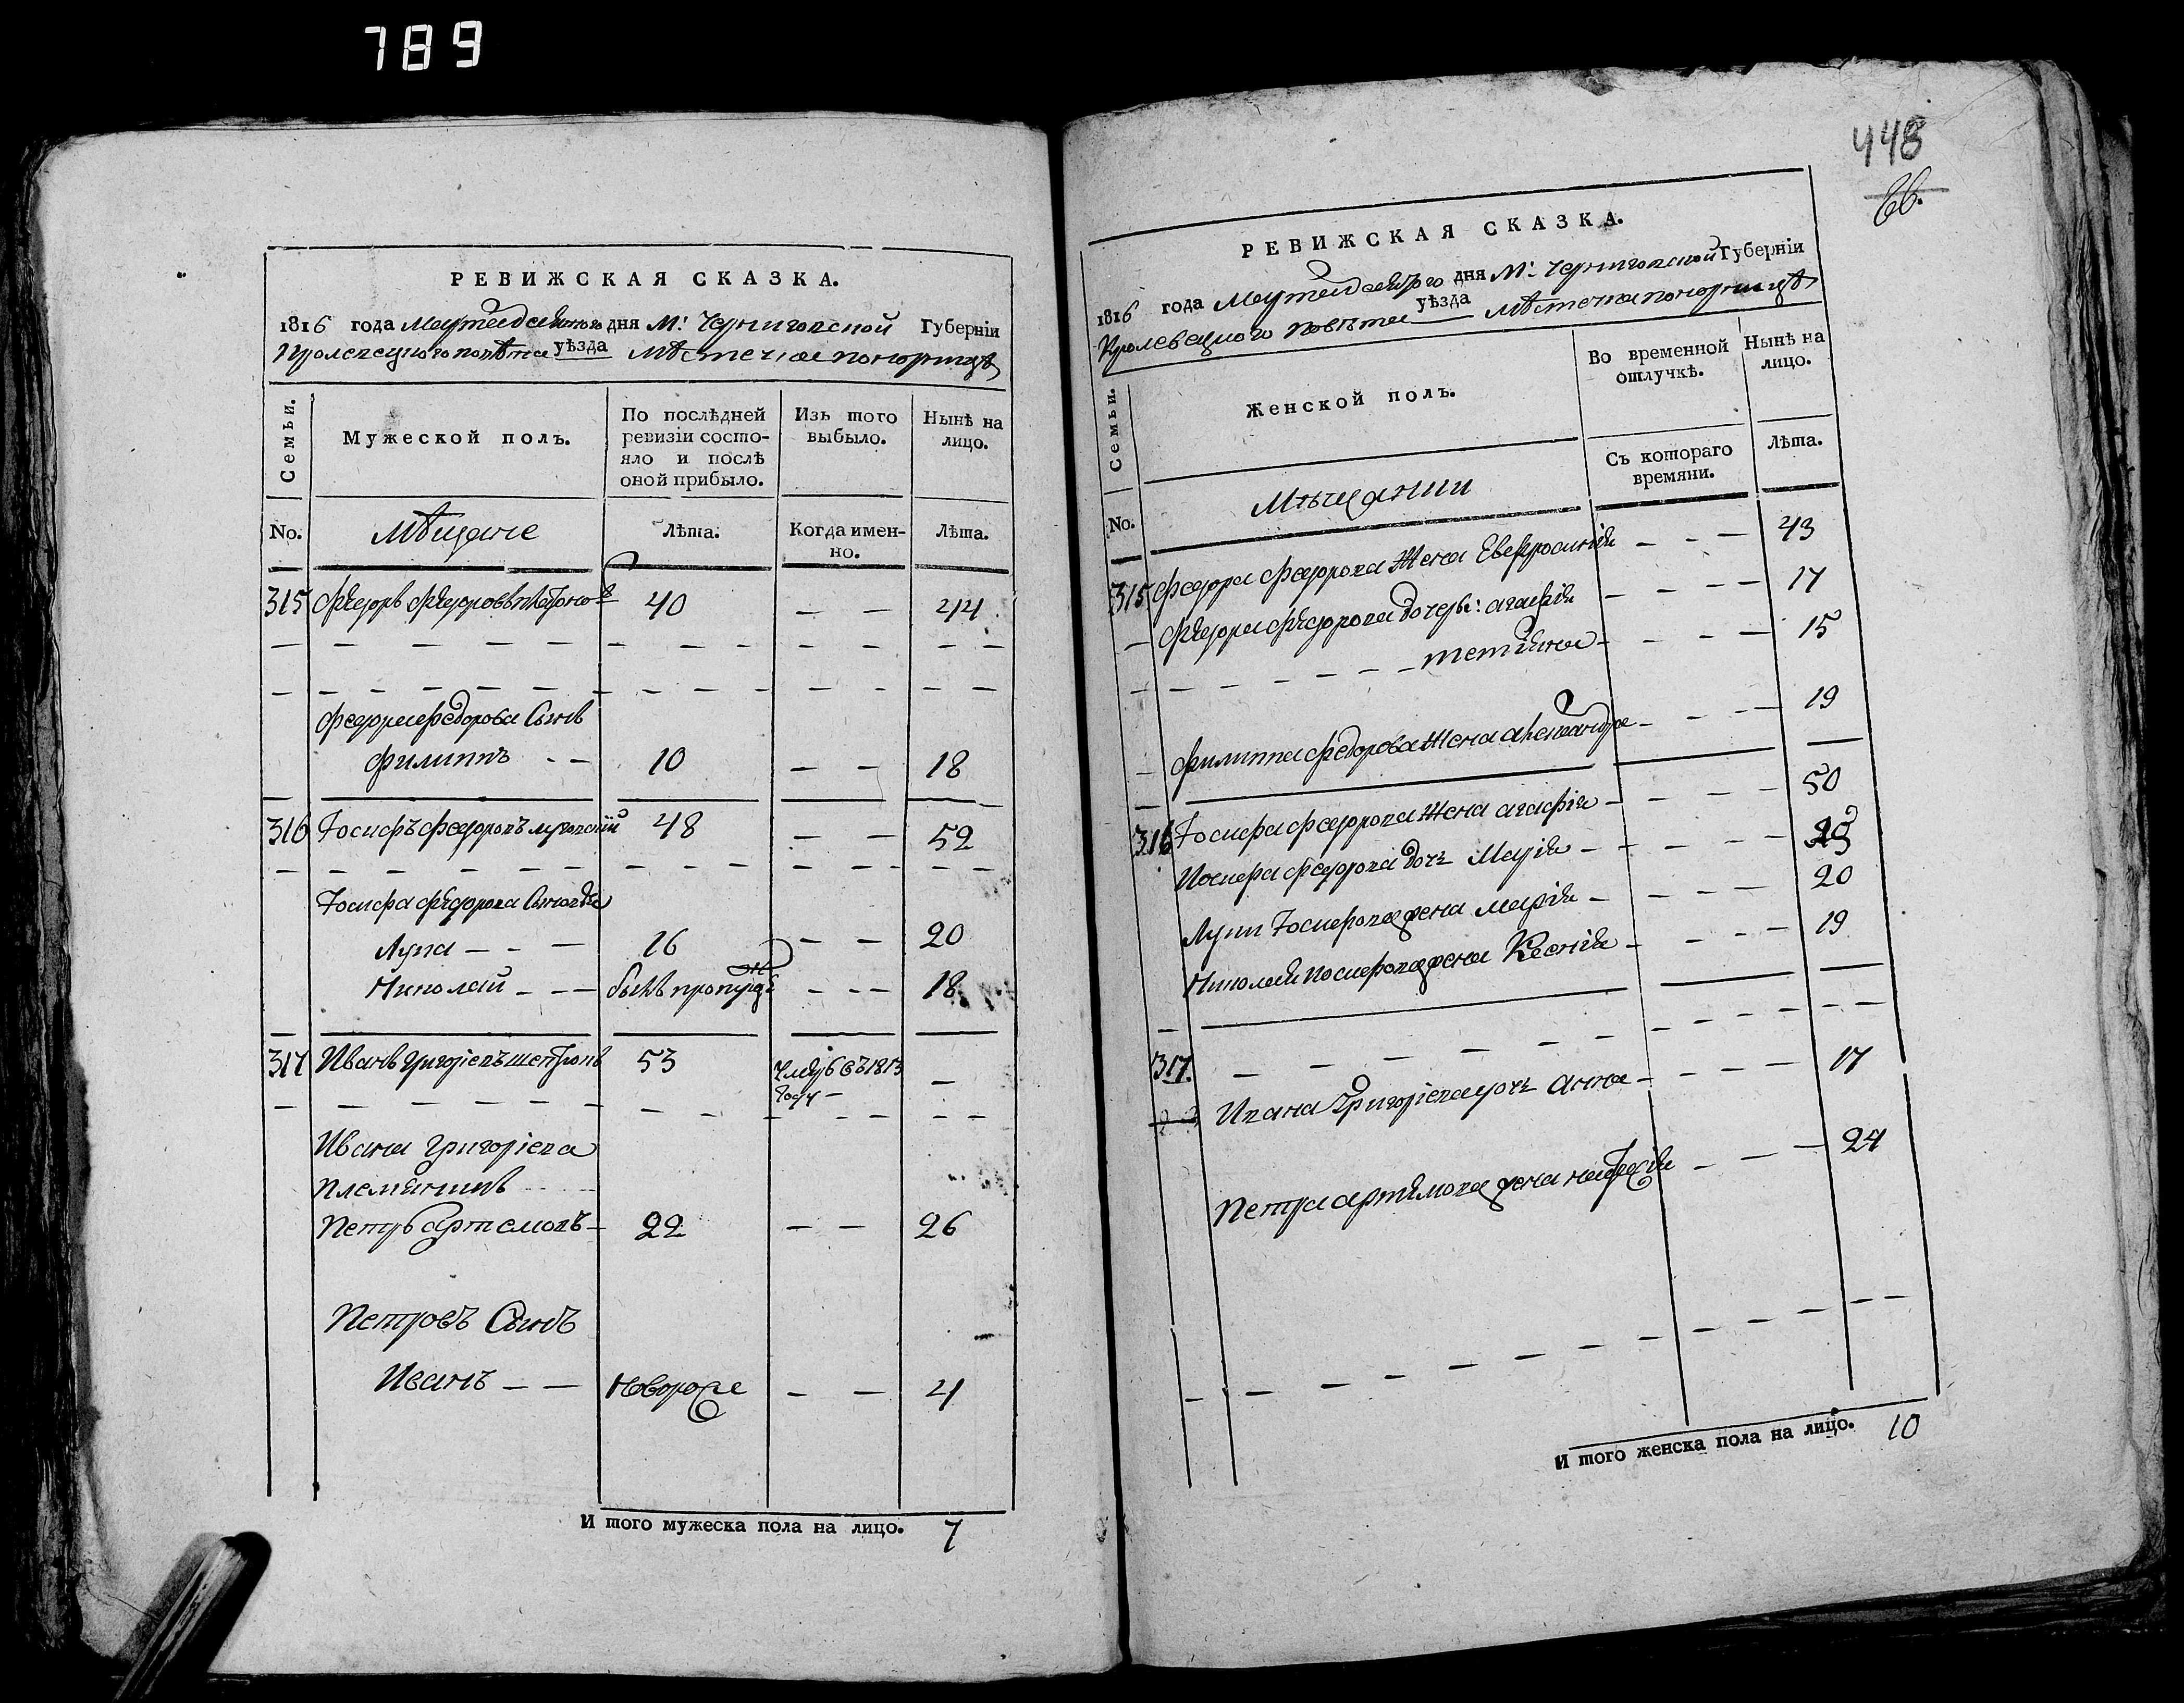 789
РЕВИЖСКАЯ СКАЗКА.
1816 года Марта дня М: Черниговской Губерніи
Кролевецкого повѣта уѣзда Мѣстечка Понорницѣ
Семьи.
Мужеской полъ.
По послѣдней ревизіи состо-
яло и послѣ
оной прибыло.
Изъ того
выбыло.
Нынѣ на
лицо.
No. Мѣщане Лѣта. Когда имен-
но. Лѣта.
315 Федоръ Федоровъ 40 — — 44
Федора Федорова Сынъ
Филиппъ - — 10 — — 18
316 Іосифъ Федоровъ 48 — — 52
Іосифа Федорова Сыновья
Лупа — - — 16 — — 20
Николай - — — былъ пропущ - — — 18
317 Иванъ Григоріевъ 53 Умеръ въ 1813
году — —
Ивана Григоріева
племянникъ
Петръ Артемовъ — 22 — — 26
Петровъ Сынъ
Иванъ — — Новорож — — 4
И того мужеска пола на лицо. 7
448
66.
РЕВИЖСКАЯ СКАЗКА.
1816 года Марта дня М: Черниговской Губерніи
Кролевецкого повѣта уѣзда Мѣстечка Понорницѣ
Семьи.
Женской полъ.
Во временной
отлучкѣ.
Нынѣ на
лицо.
Съ котораго
времяни.
Лѣта.
No. Мѣщанки
315 Федора Федорова Жена Евфросинія - — — 43
Федора Федорова дочеры: Агафія — - — — 17
Тетіяна — - — 15
Филиппа Федорова Жена Александра — - — 19
316 Іосифа Федорова Жена Агафія — - — 50
Иосифа Федорова дочь Марія - — — —
Лупи Іосифова жена Марія — - — — 20
Николая Иосифова жена Ксенія — - — 19
317.
Ивана Григоріева дочь Анна — - — — 17
Петра Артемова жена - — — 24
И того женска пола на лицо. 10